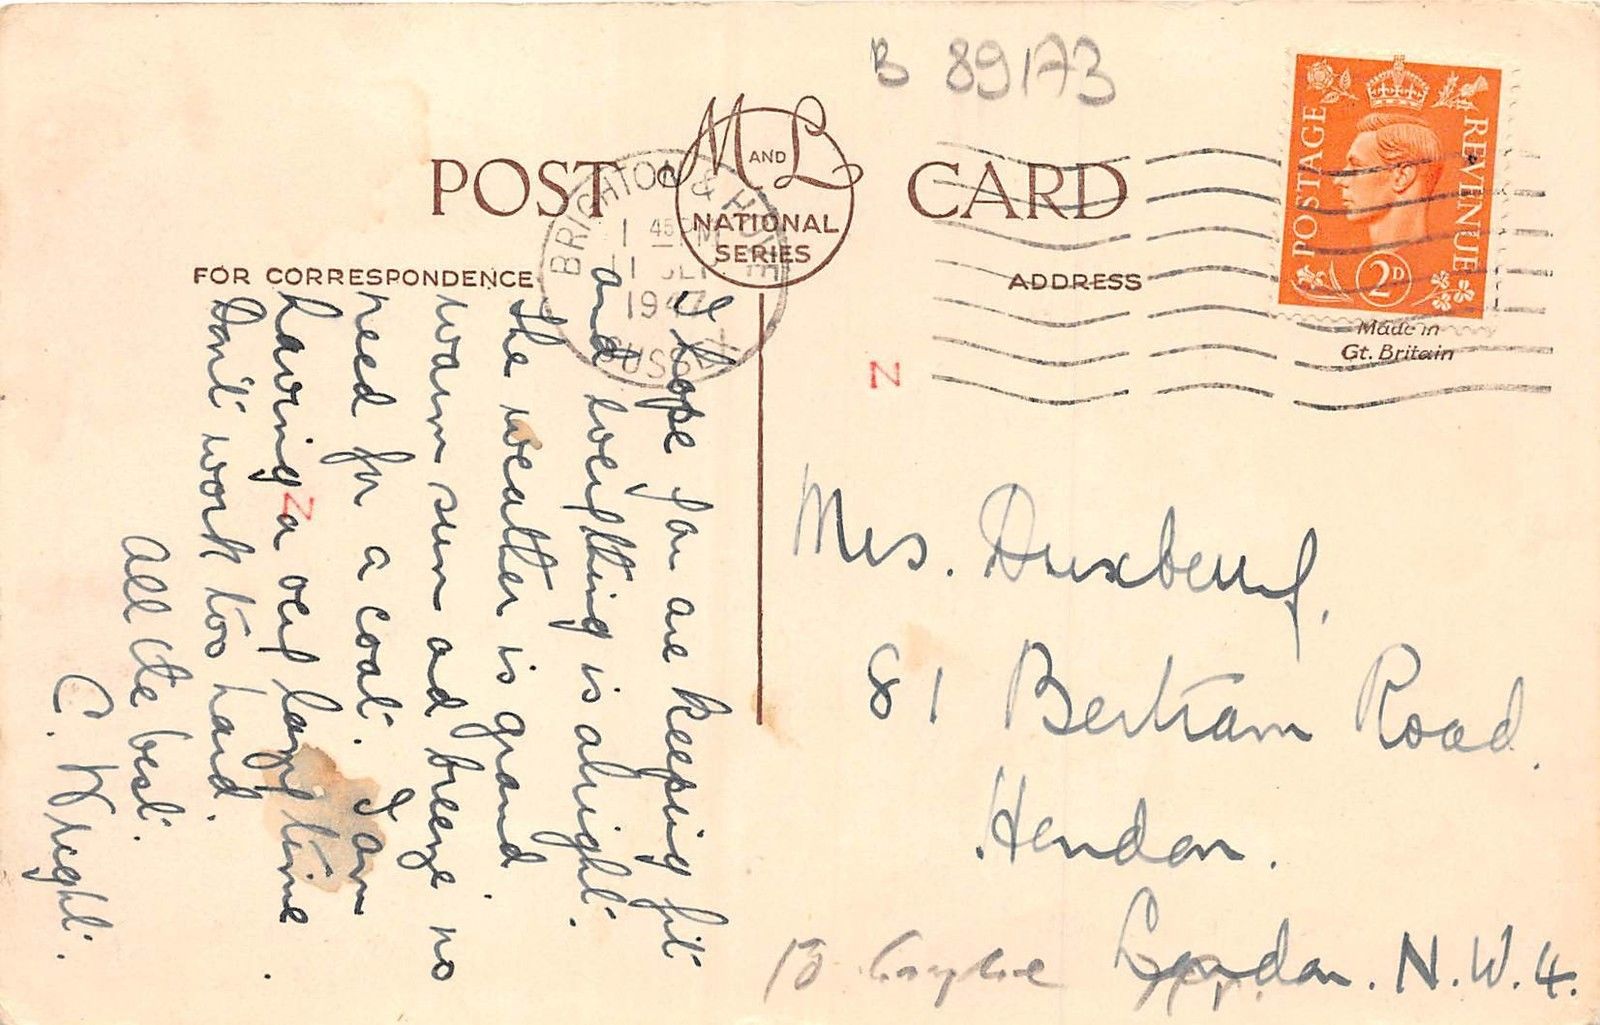 B 89173
POST CARD
M AND L
NATIONAL
SERIES
BRIGHTON & HOVE
1 45 PM
1 SEP
1947
SUSSEX
FOR CORRESPONDENCE
ADDRESS
POSTAGE
REVENUE
2D
Made in
Gt. Britain
N
I hope you are keeping fit
and everything is alright.
The weather is grand.
warm sun and breeze no
need for a coat. I am
having a very lazy time.
Don't work too hard.
All the best.
C. Wright.
N
Mrs. Duxbury,
81 Bertram Road.
Hendon.
London. N.W.4.